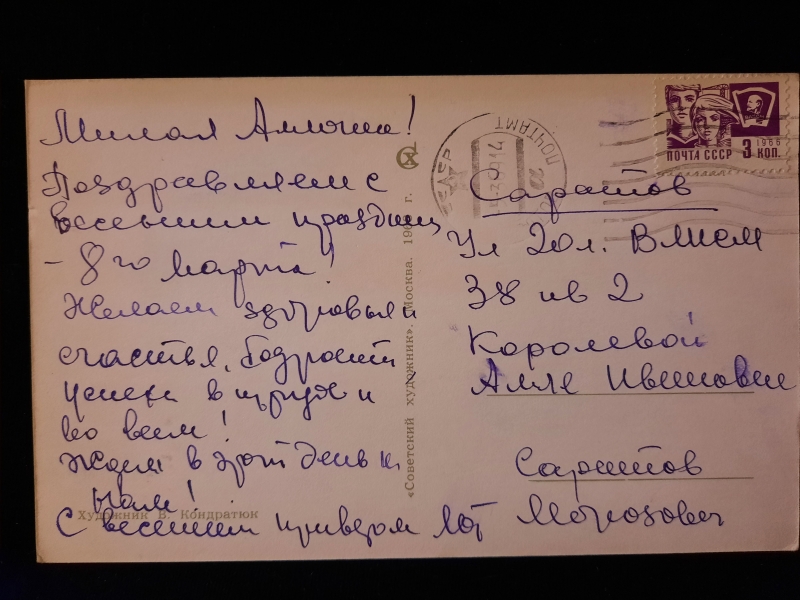 Милая Аллочка!
Поздравляем с
весенним праздник
- 8го марта!
Желаем здоровья и
счастья, бодрости
успеха в труде и
во всем!
Ждем в этот день к
нам!
С весенним приветом
Художник В. Кондратюк
«Советский художник». Москва. 19 г.
ПОЧТАМТ
ПОЧТА СССР 3 КОП.
1966
Саратов
Ул 20л. ВЛКСМ
38 кв 2
Королевой
Алле Ивановне
Саратов
Морозович